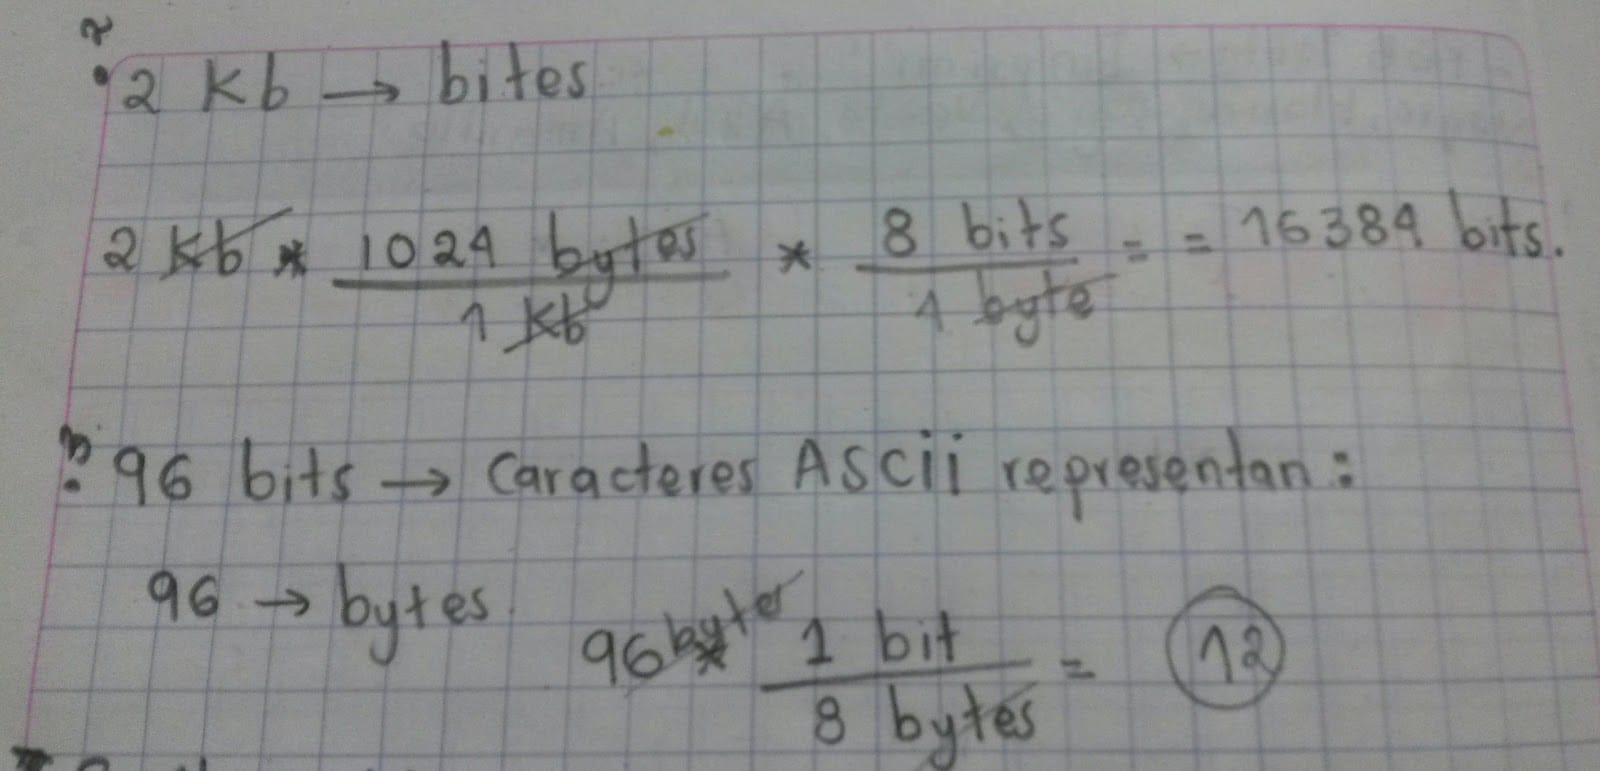 2 Kb → bites
2 Kb * 1024 bytes / 1 Kb * 8 bits / 1 byte = = 16384 bits.
96 bits → Caracteres ASCii representan:
96 → bytes.
96 bytes * 1 bit / 8 bytes = 12